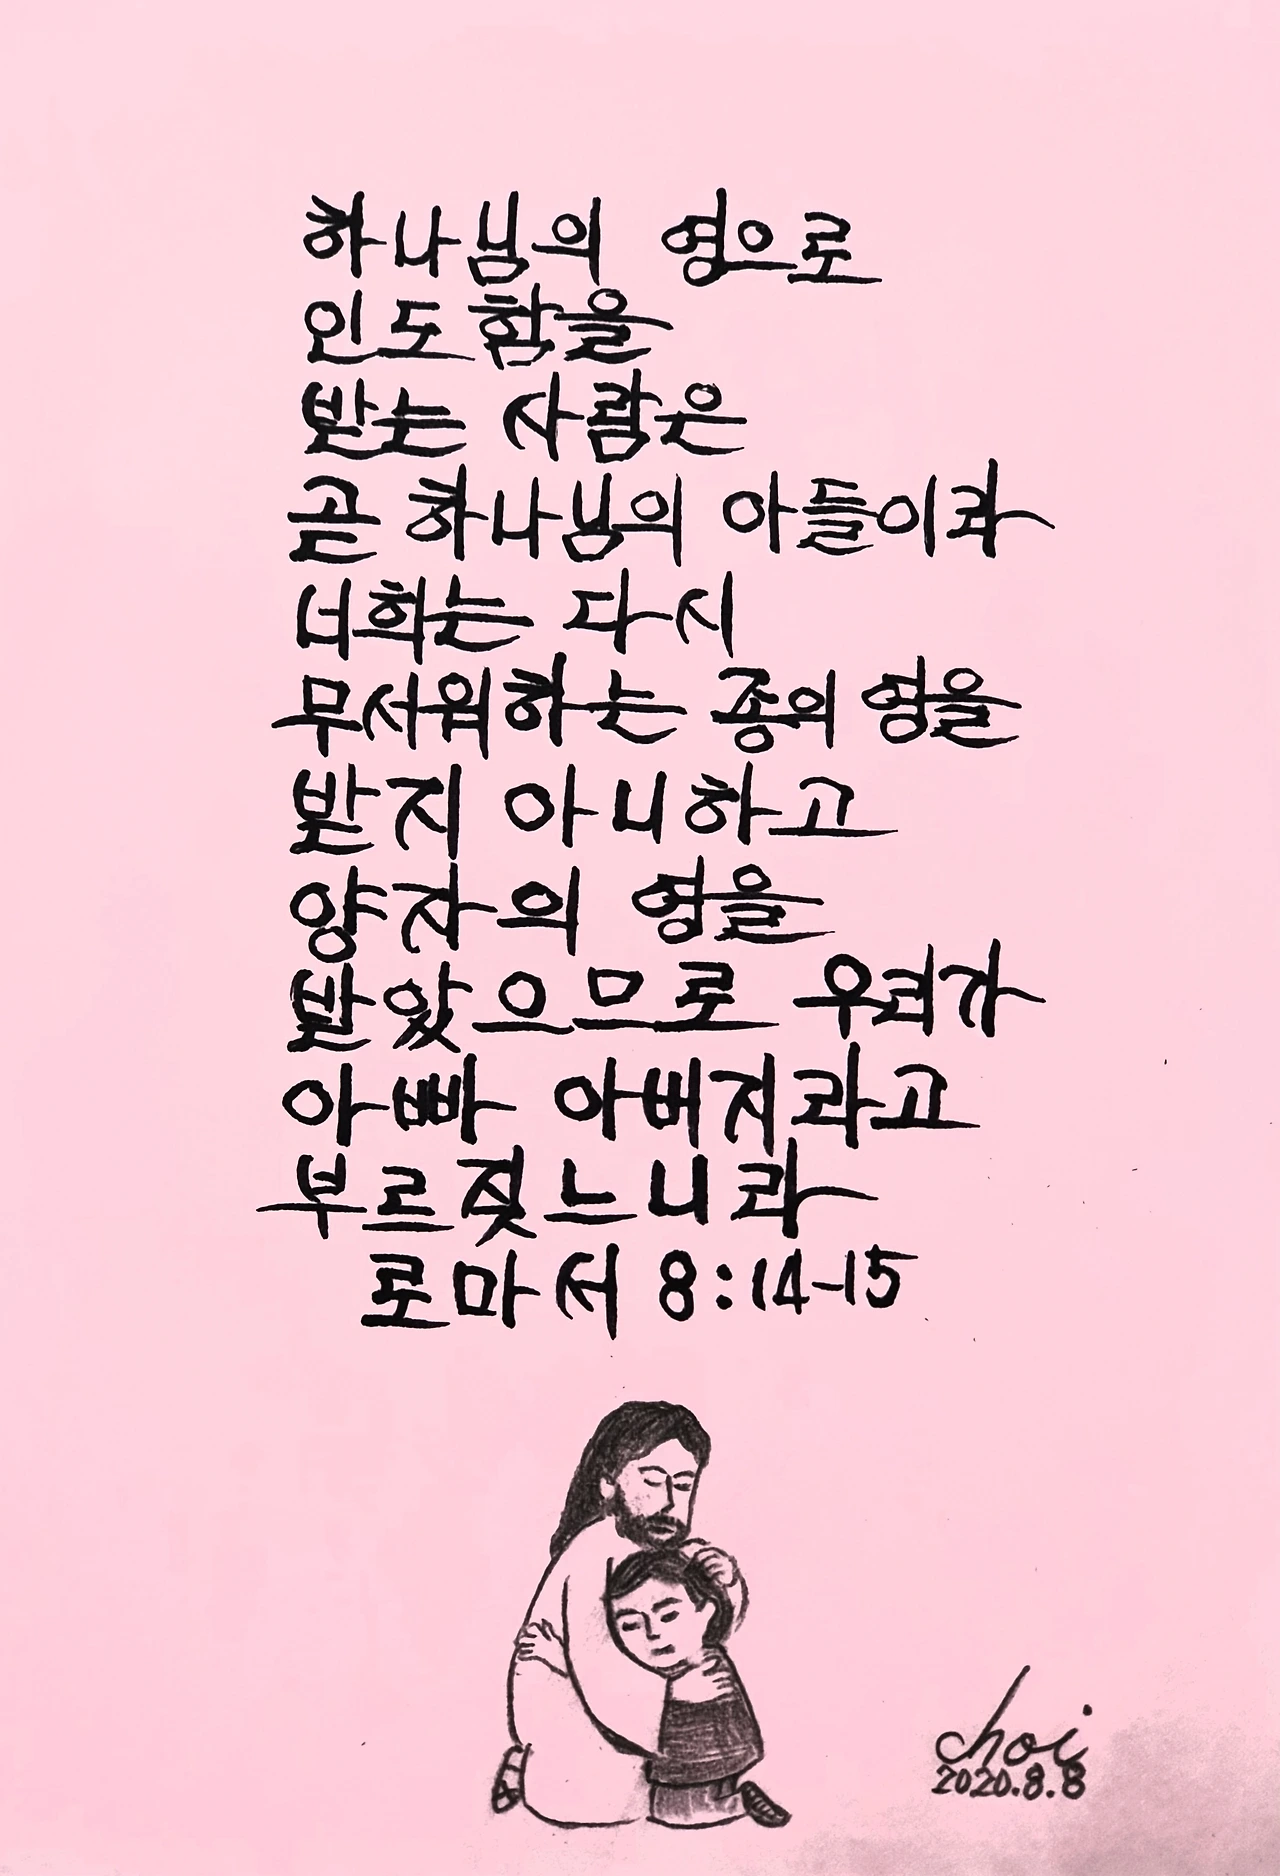 하나님의 영으로
인도함을
받는 사람은
곧 하나님의 아들이라
너희는 다시
무서워하는 종의 영을
받지 아니하고
양자의 영을
받았으므로 우리가
아빠 아버지라고
부르짖느니라
로마서 8:14-15
choi
2020.8.8